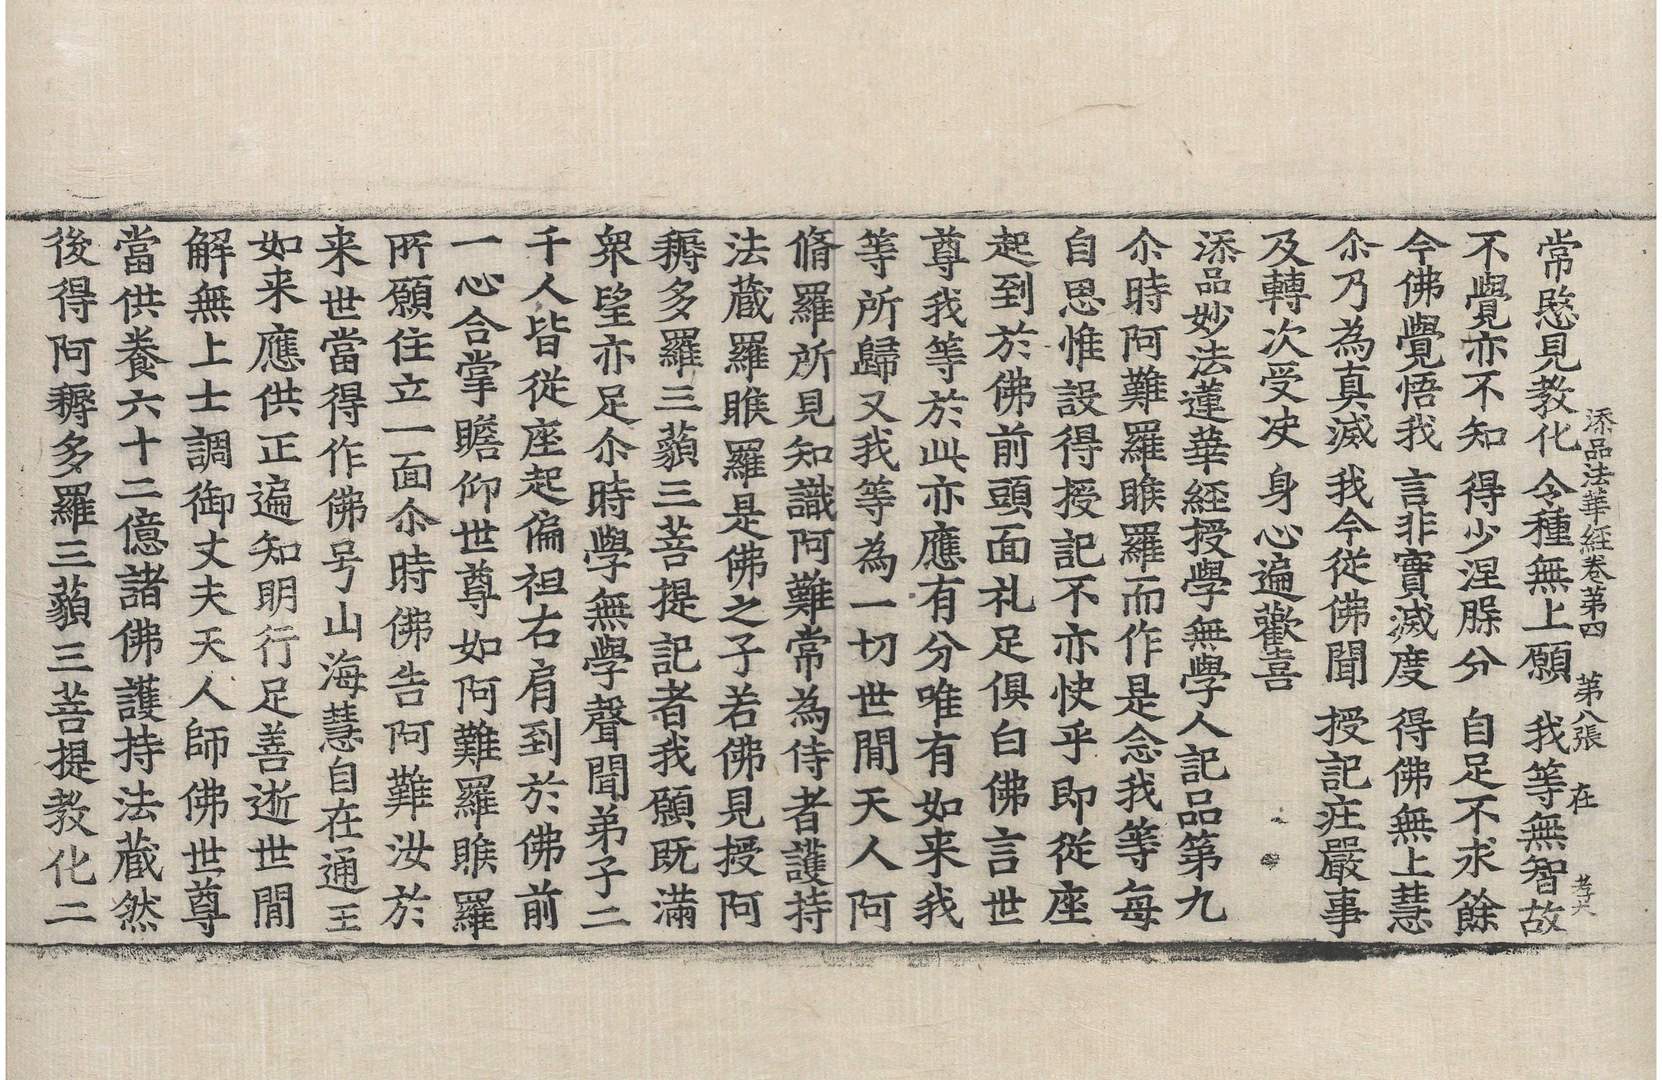 添品法華經卷第四　第八張　在　孝大
常愍見教化　令種無上願　我等無智故
不覺亦不知　得少涅槃分　自足不求餘
今佛覺悟我　言非實滅度　得佛無上慧
尒乃為真滅　我今從佛聞　授記莊嚴事
及轉次受决　身心遍歡喜
添品妙法蓮華經授學無學人記品第九
尒時阿難羅睺羅而作是念我等每
自思惟設得授記不亦快乎即從座
起到於佛前頭面礼足俱白佛言世
尊我等於此亦應有分唯有如来我
等所歸又我等為一切世間天人阿
脩羅所見知識阿難常為侍者護持
法藏羅睺羅是佛之子若佛見授阿
耨多羅三藐三菩提記者我願既滿
衆望亦足尒時學無學聲聞弟子二
千人皆從座起偏袒右肩到於佛前
一心合掌瞻仰世尊如阿難羅睺羅
所願住立一面尒時佛告阿難汝於
来世當得作佛号山海慧自在通王
如来應供正遍知明行足善逝世間
解無上士調御丈夫天人師佛世尊
當供養六十二億諸佛護持法藏然
後得阿耨多羅三藐三菩提教化二